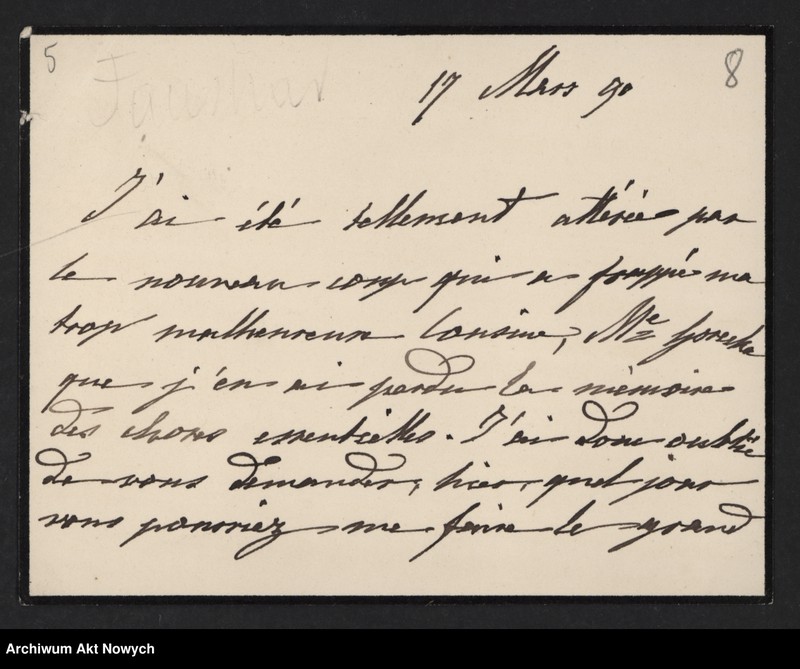 5
8
17 Mars 90
J'ai été tellement attérée par
le nouveau coup qui a frappé ma
trop malheureuse Cousine, Me Gorecka
que j'en ai perdu la mémoire
des choses essentielles. J'ai donc oublié
de vous demander, hier, quel jour
vous pourriez me faire le grand
Archiwum Akt Nowych